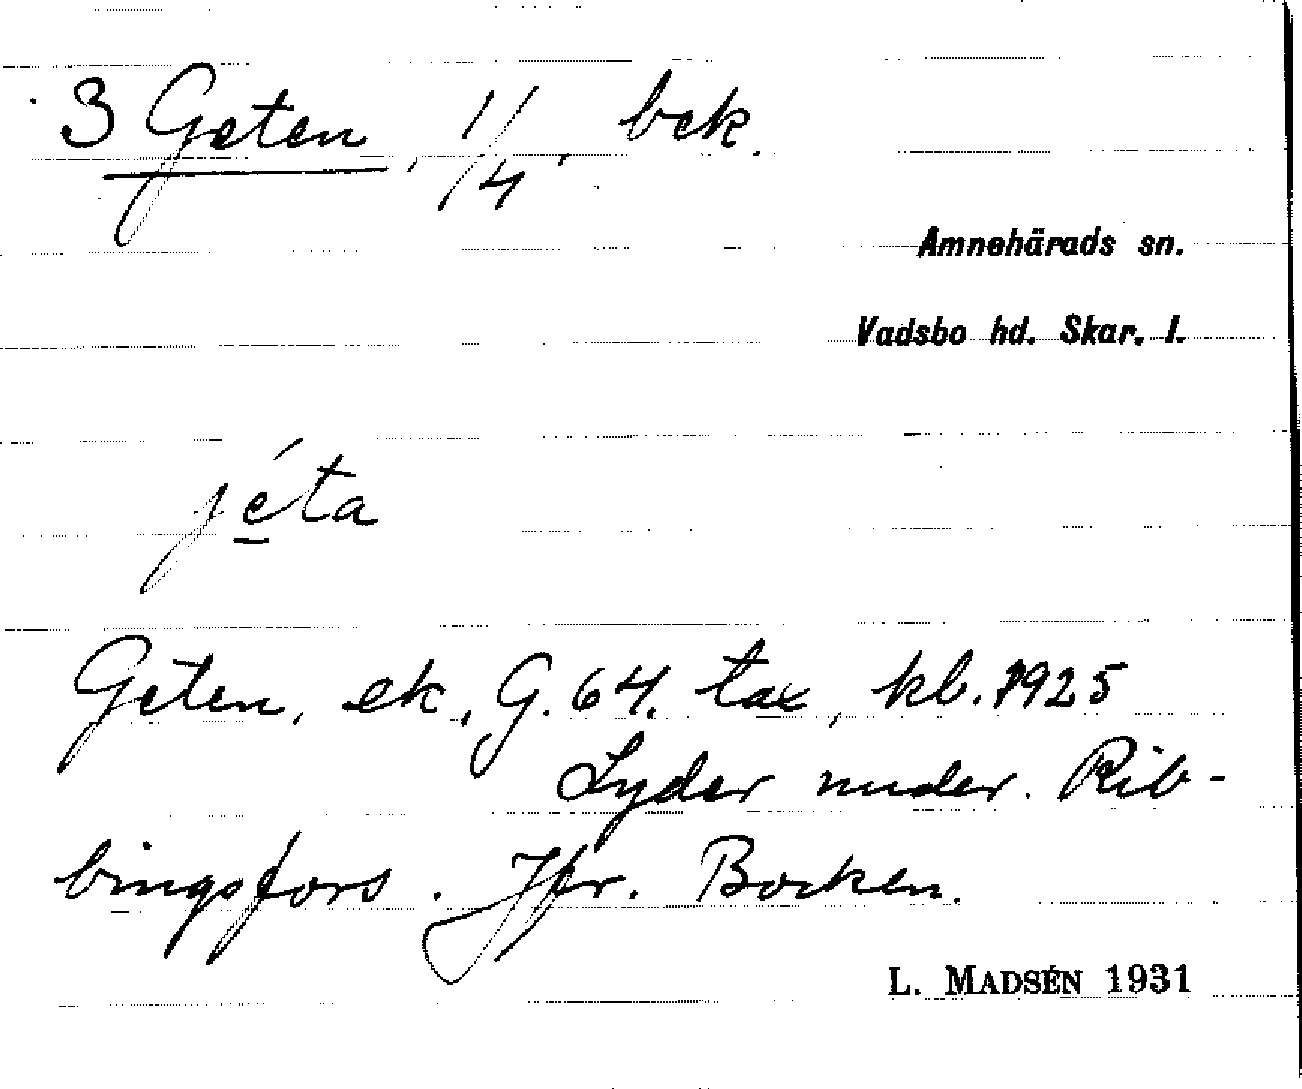 3 Geten, 1/4, bek.
Amnehärads sn.
Vadsbo hd. Skar. l.
jéta
Geten, ek, G. 64. tax, kb. 1925
Lyder under. Rib-
bingsfors. Jfr. Bocken.
L. MADSÉN 1931